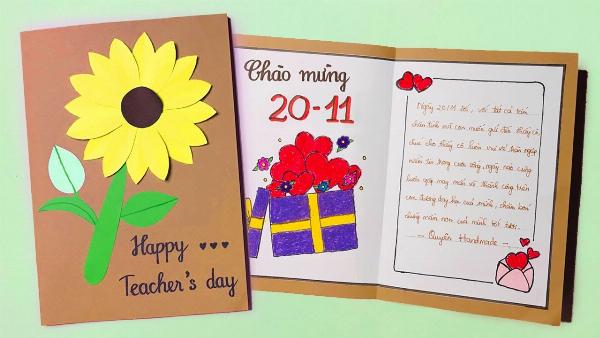 Happy
Teacher's day
Chào mừng
20-11
Ngày 20/11 tới, với tất cả tấm
chân tình mà con muốn gửi đến thầy cô
chúc cho thầy cô luôn vui vẻ tràn ngập
niềm tin trong cuộc sống, ngày nào cũng
luôn gặp may mắn và thành công trên
con đường dạy học của mình, chăm lo
những mầm non của mình tốt tươi.
- Quyên Handmade -